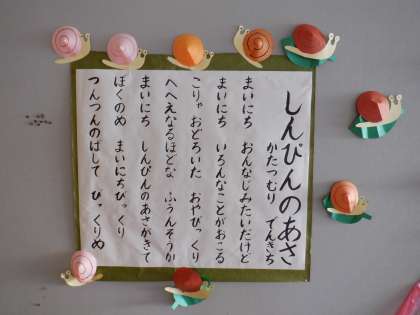 しんぴんのあさ
かたつむり でんきち
まいにち おんなじみたいだけど
まいにち いろんなことがおこる
こりゃ おどろいた おやびっくり
へへえなるほどな ふうんそうか
まいにち しんぴんのあさがきて
ぼくのめ まいにちびっくり
つんつんのばして びっくりめ